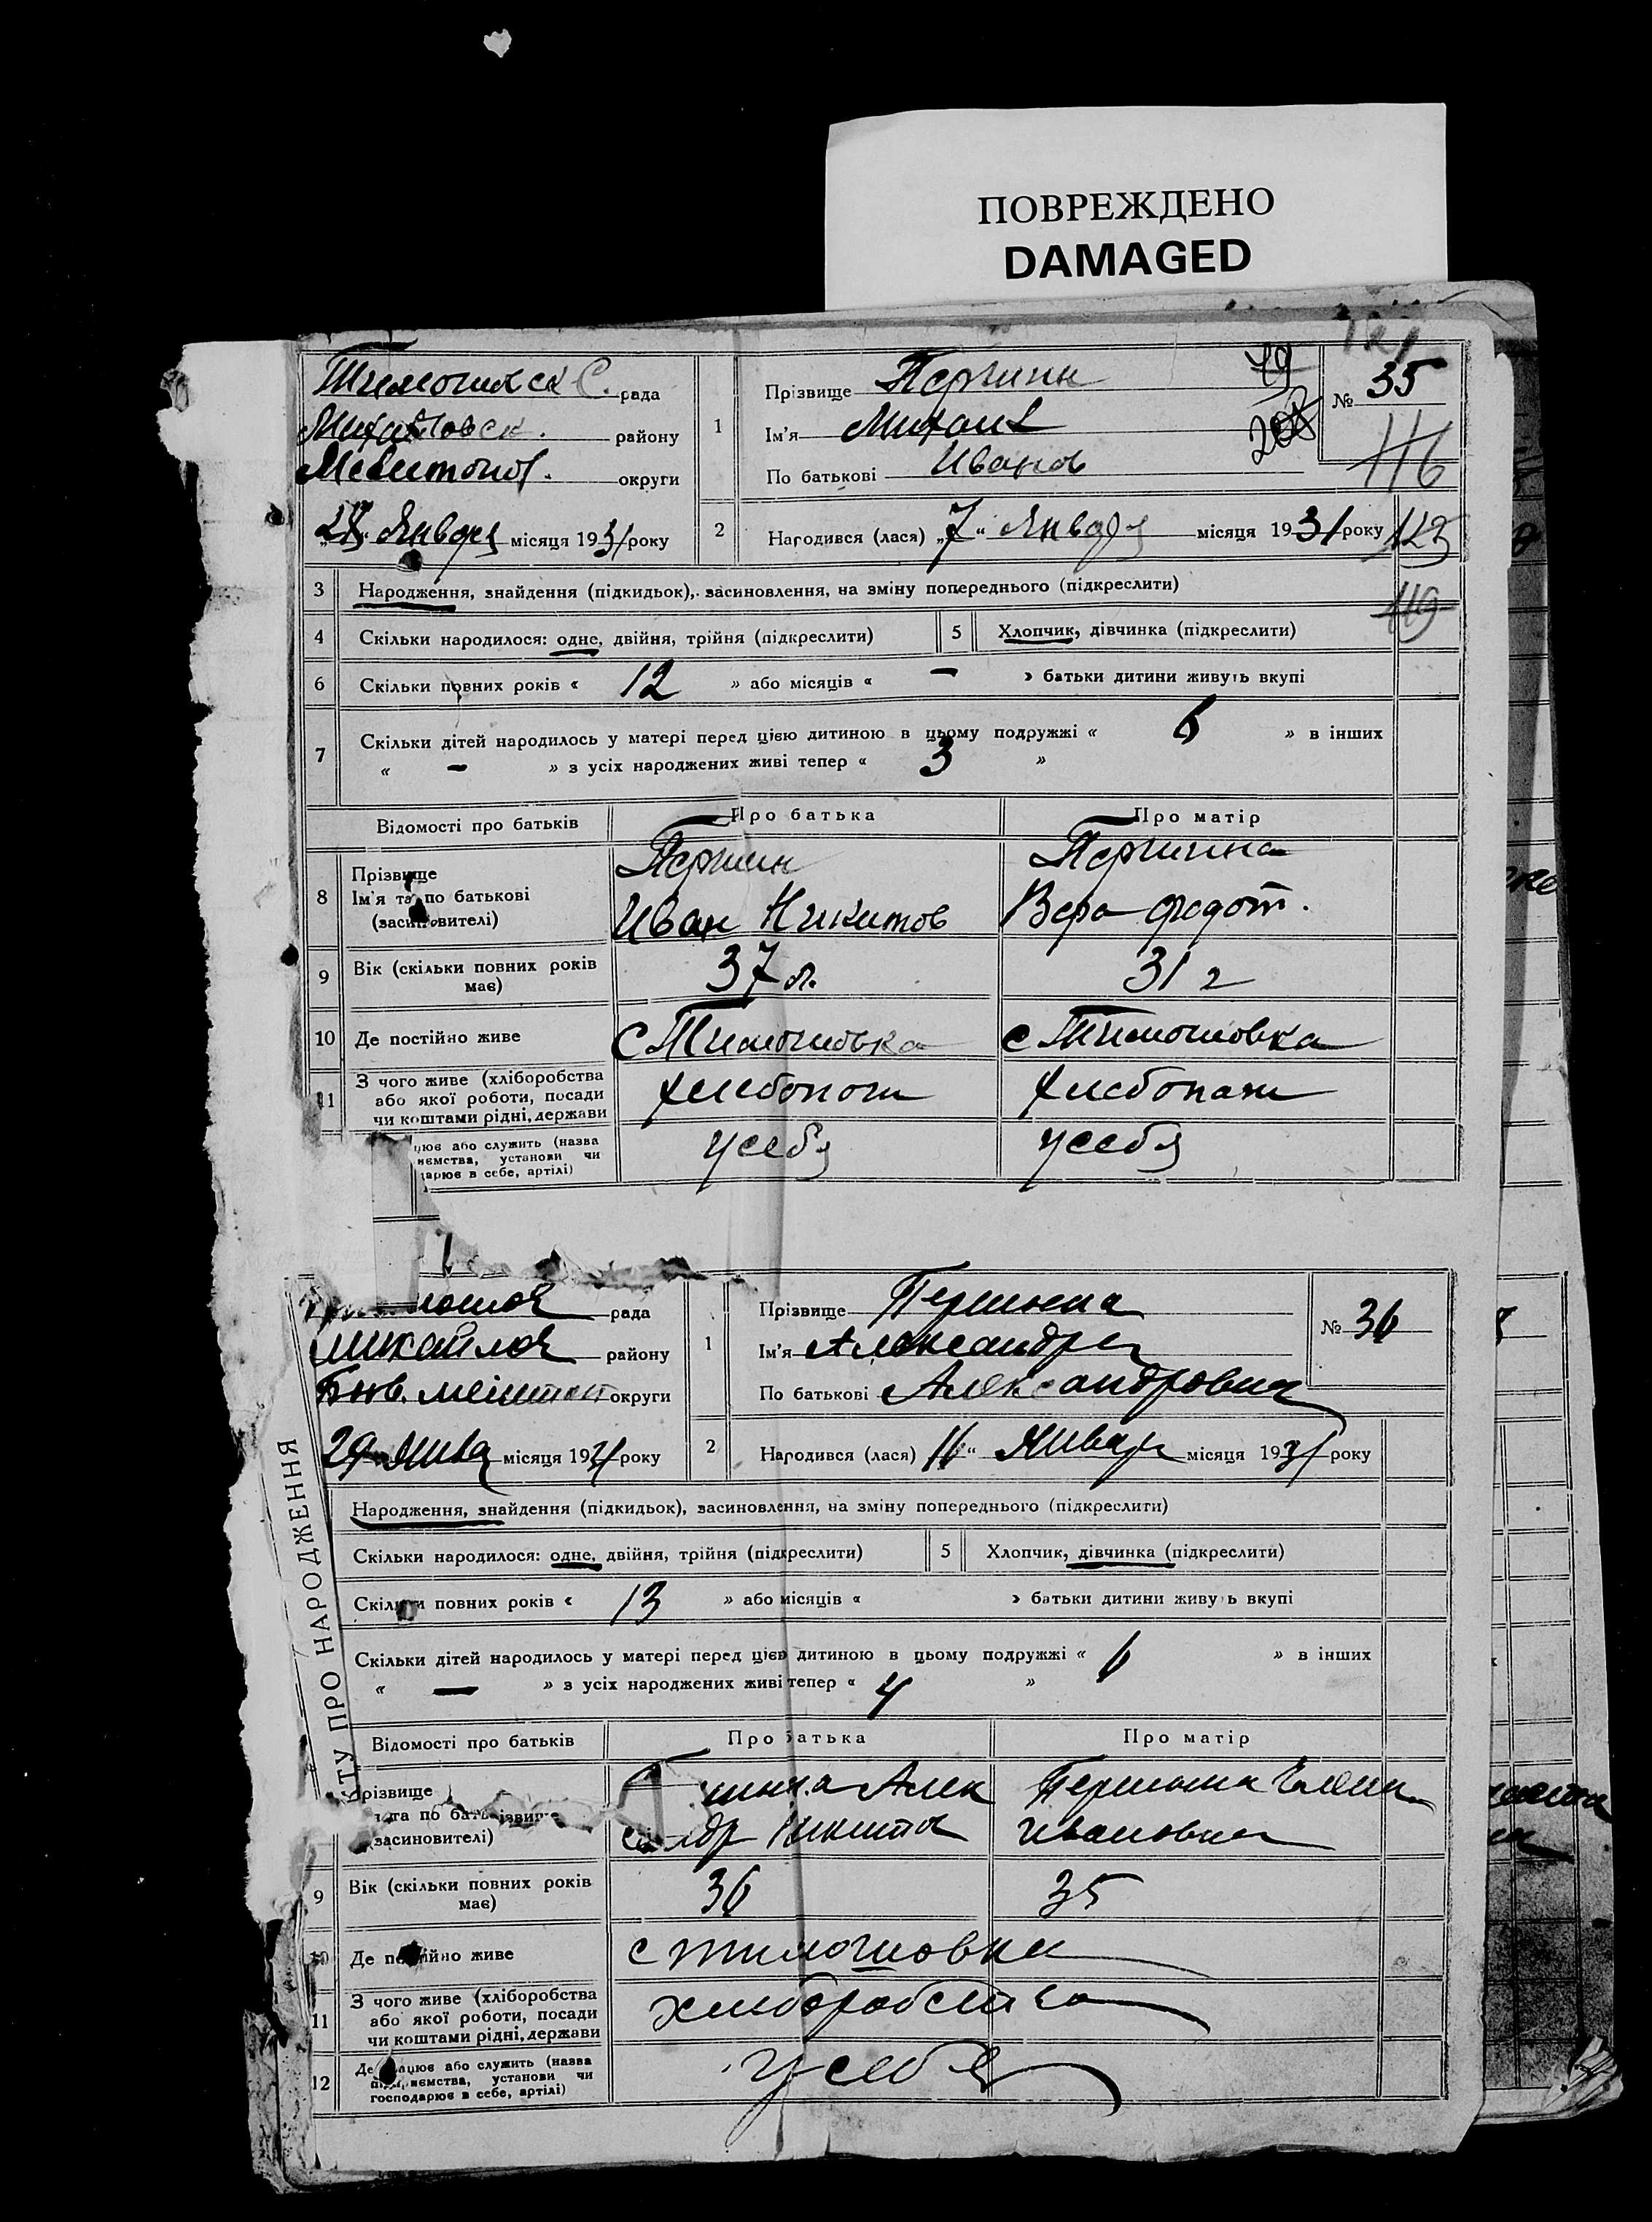 ПОВРЕЖДЕНО
DAMAGED
121
Тимошовск С. рада
Михайловск. району
Мелитопол. округи
28 Января місяця 1931 року
1
Прізвище Першин
Ім'я Михаил
По батькові Иванов
79
208
№ 35
116
2
Народився (лася) „7“ Января місяця 1931 року
125
119
3 Народження, знайдення (підкидьок), засиновлення, на зміну попереднього (підкреслити)
4 Скільки народилося: одне, двійня, трійня (підкреслити) 5 Хлопчик, дівчинка (підкреслити)
6 Скільки повних років « 12 » або місяців « — » батьки дитини живуть вкупі
7 Скільки дітей народилось у матері перед цією дитиною в цьому подружжі « 6 » в інших
« — » з усіх народжених живі тепер « 3 »
Відомості про батьків Про батька Про матір
8 Прізвище Першин Першина
Ім'я та по батькові
(засиновителі) Иван Никитов Вера Федот.
9 Вік (скільки повних років має) 37 л. 31 г
10 Де постійно живе с Тимошовка с Тимошовка
11 З чого живе (хліборобства
або якої роботи, посади
чи коштами рідні, держави хлебопаш хлебопаш
цює або служить (назва
иємства, установи чи
дарює в себе, артілі) у себя у себя
мошов рада
михайлов району
округи
29 Янва місяця 1931 року
1
Прізвище Першина
Ім'я Александра
По батькові Александровна
№ 36
2
Народився (лася) 16“ Январ місяця 1931 року
Народження, знайдення (підкидьок), засиновлення, на зміну попереднього (підкреслити)
Скільки народилося: одне, двійня, трійня (підкреслити) 5 Хлопчик, дівчинка (підкреслити)
Скільки повних років « 13 » або місяців « » батьки дитини живуть вкупі
Скільки дітей народилось у матері перед цією дитиною в цьому подружжі « 6 » в інших
« — » з усіх народжених живі тепер « 4 »
ТУ ПРО НАРОДЖЕННЯ
Відомості про батьків Про батька Про матір
різвище
та по бать
(засиновителі)
шина Алек
ндр Никитов
Першина Елен
Ивановна
9 Вік (скільки повних років має) 36 35
10 Де постійно живе с тимошовка
11 З чого живе (хліборобства
або якої роботи, посади
чи коштами рідні, держави хлиборобства
12 Де працює або служить (назва
підприємства, установи чи
господарює в себе, артілі) у себе